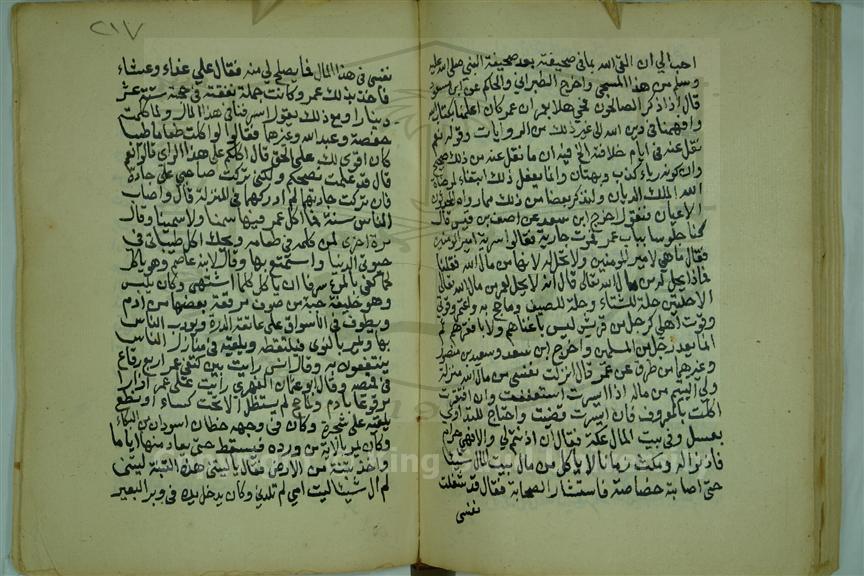 احب الي ان القى الله بما في صحيفته بعد صحيفة النبي صلى الله عليه
وسلم من هذا المسجى واخرج الطبراني والحاكم عن ابن مسعود
قال اذا ذكر الصالحون فحي هلا بعمر ان عمر كان اعلمنا بكتاب الله
وافقهنا في دين الله الى غير ذلك من الروايات وقوله نعم
نقل عنه في ايام خلافة الخ فيه ان ما نقل عنه من ذلك صحيح
وان كونه رياء كذب وبهتان وانما يفعل ذلك ابتغاء لمرضاة
الله الملك الديان ولنذكر بعضا من ذلك مما رواه
الاعيان فنقول اخرج ابن سعد عن احنف بن قيس قال
كنا جلوسا بباب عمر فمرت جارية فقالوا سرية امير المؤمنين
فقال ما هي لامير المؤمنين ولا تحل له لانها من مال الله فقلنا
فماذا يحل له من مال الله تعالى قال انه لا يحل لعمر من مال الله تعالى
الا حلتين حلة للشتاء وحلة للصيف وما حج به واعتمر وقوتي
وقوت اهلي كرجل من قريش ليس باغناهم ولا بافقرهم ثم
انا بعد رجل من المسلمين واخرج ابن سعد وسعيد بن منصور
وغيرهما من طرق عن عمر قال انزلت نفسي من مال الله منزلة
ولي اليتيم من ماله اذا ايسرت استعففت وان افتقرت
اكلت بالمعروف فان ايسرت قضيت واحتاج للتداوي
بعسل وفي بيت المال عكة فقال ان اذنتم لي والا فهي حرام
فاذنوا له ومكث زمانا لا ياكل من مال بيت المال شيئا
حتى اصابته خصاصة فاستشار الصحابة فقال قد شغلت
نفسي
٢١٧
نفسي في هذا المال فما يصلح لي منه فقال علي غداء وعشاء
فاخذ بذلك عمر وكانت جملة نفقته في حجته ستة عشر
دينارا ومع ذلك يقول اسرفنا في هذا المال ولما كلمته
حفصة وعبد الله وغيرهما فقالوا لو اكلت طعاما طيبا
كان اقوى لك على الحق قال اكلكم على هذا الراي قالوا نعم
قال قد علمت نصحكم ولكني تركت صاحبي على جادة
فان تركت جادتهما لم ادركهما في المنزلة قال واصاب
الناس سنة فما اكل عمر فيها سمنا ولا سمينا وقال
مرة اخرى لمن كلمه في طعامه ويحك اكل طيباتي في
حيوتي الدنيا واستمتع بها وقال لابنه عاصم وهو ياكل
لحما كفى بالمرء سرفا ان ياكل كلما اشتهى وكان يلبس
وهو خليفة جبة من صوف مرقعة بعضها من ادم
ويطوف في الاسواق على عاتقه الدرة ويودب الناس
بها ويمر بالنوى فيلتقطه ويلقيه في منازل الناس
ينتفعون به وقال انس رايت بين كتفي عمر اربع رقاع
في قميصه وقال ابو عثمان النهدي رايت على عمر ازارا
مرقوعا بادم وحج لم يستظل الا تحت كساء او نطع
يلقيه على شجرة وكان في وجهه خطان اسودان من البكاء
وكان يمر بالاية من ورده فيسقط حتى يعاد منها اياما
واخذ تبنة من الارض فقال يا ليتني هذه التبنة ليتني
لم ال شيئا ليت امي لم تلدني وكان يدخل يده في وبر البعير